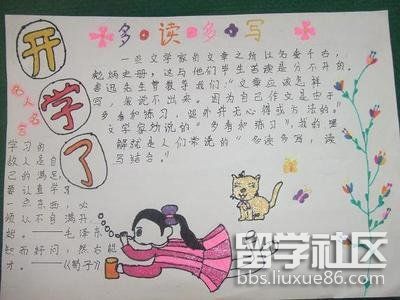 开学了
多读多写
一些文学家的文章之所以名垂千古,
彪炳史册,这与他们毕生苦读是分不开的。
鲁迅先生曾教导我们:“文章应该怎样
写,我说不出来。因为自己作文是由于
多看和练习,此外并无心得或方法的。”
文学家劝说的“多看和练习”,我的理
解就是人们常说的“多读多写,读
写结合。”
名人名言
学习的
敌人是自
己的满足,
要认真学习
一点东西,必
须从不自满开
始。——毛泽东
知而好问,然后能
才。——《荀子》
留学社区
bbs.liuxue86.com